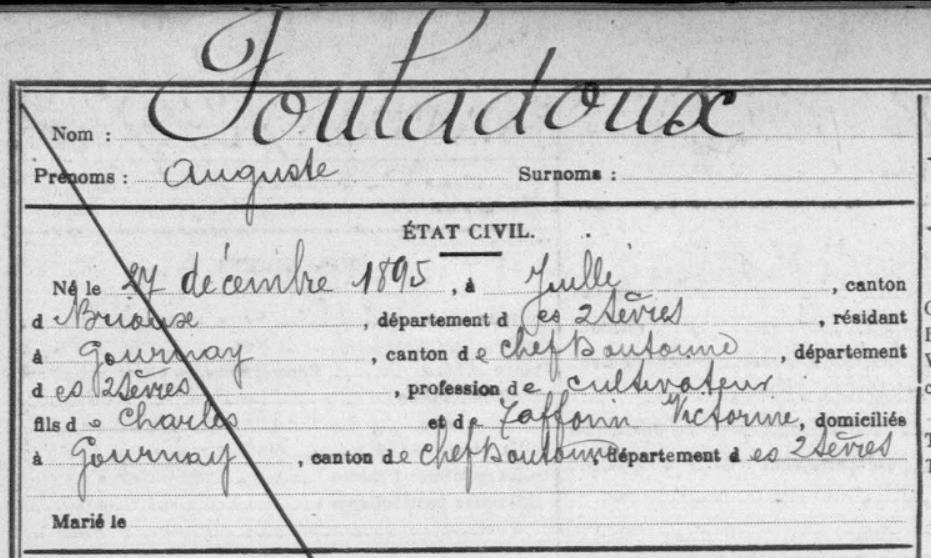 Nom : Fouladoux
Prénoms : Auguste Surnoms :
ÉTAT CIVIL.
Né le 27 décembre 1895, à Juillé, canton
d Brioux, département d es 2 Sèvres, résidant
à Gournay, canton de Chef Boutonne, département
d es 2 Sèvres, profession de cultivateur
fils de Charles et de Victorine, domiciliés
à Gournay, canton de Chef Boutonne, département d es 2 Sèvres
Marié le